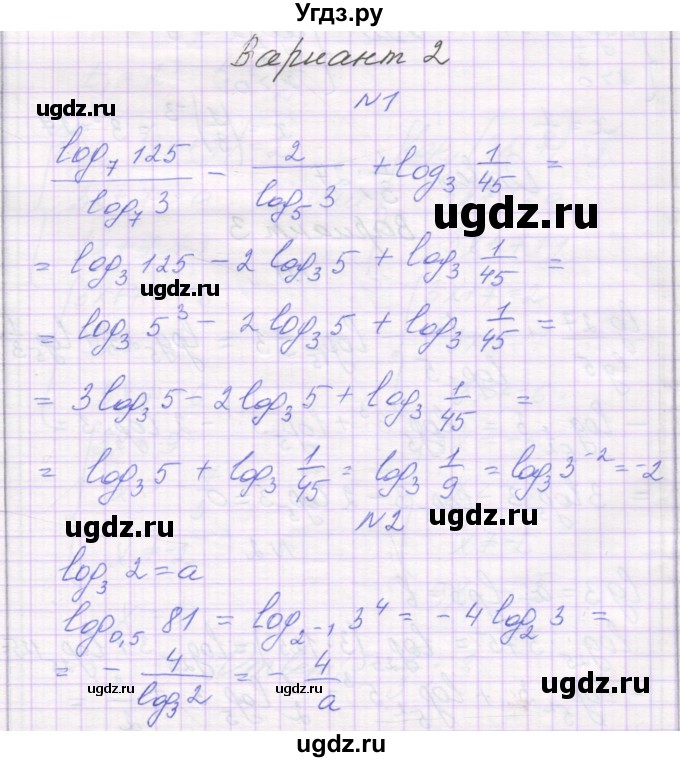 Угдз.ру
Вариант 2
ugdz.ru
№1
log₇ 125 / log₇ 3 − 2 / log₅ 3 + log₃ 1/45 =
ugdz.ru
= log₃ 125 − 2 log₃ 5 + log₃ 1/45 =
ugdz.ru
= log₃ 5³ − 2 log₃ 5 + log₃ 1/45 =
= 3 log₃ 5 − 2 log₃ 5 + log₃ 1/45 =
= log₃ 5 + log₃ 1/45 = log₃ 1/9 = log₃ 3⁻² = −2
ugdz.ru
№2
ugdz.ru
log₃ 2 = a
log₀,₅ 81 = log₂₋₁ 3⁴ = − 4 log₂ 3 =
= − 4 / log₃ 2 = − 4/a
ugdz.ru
ugdz.ru
ugdz.ru
ugdz.ru